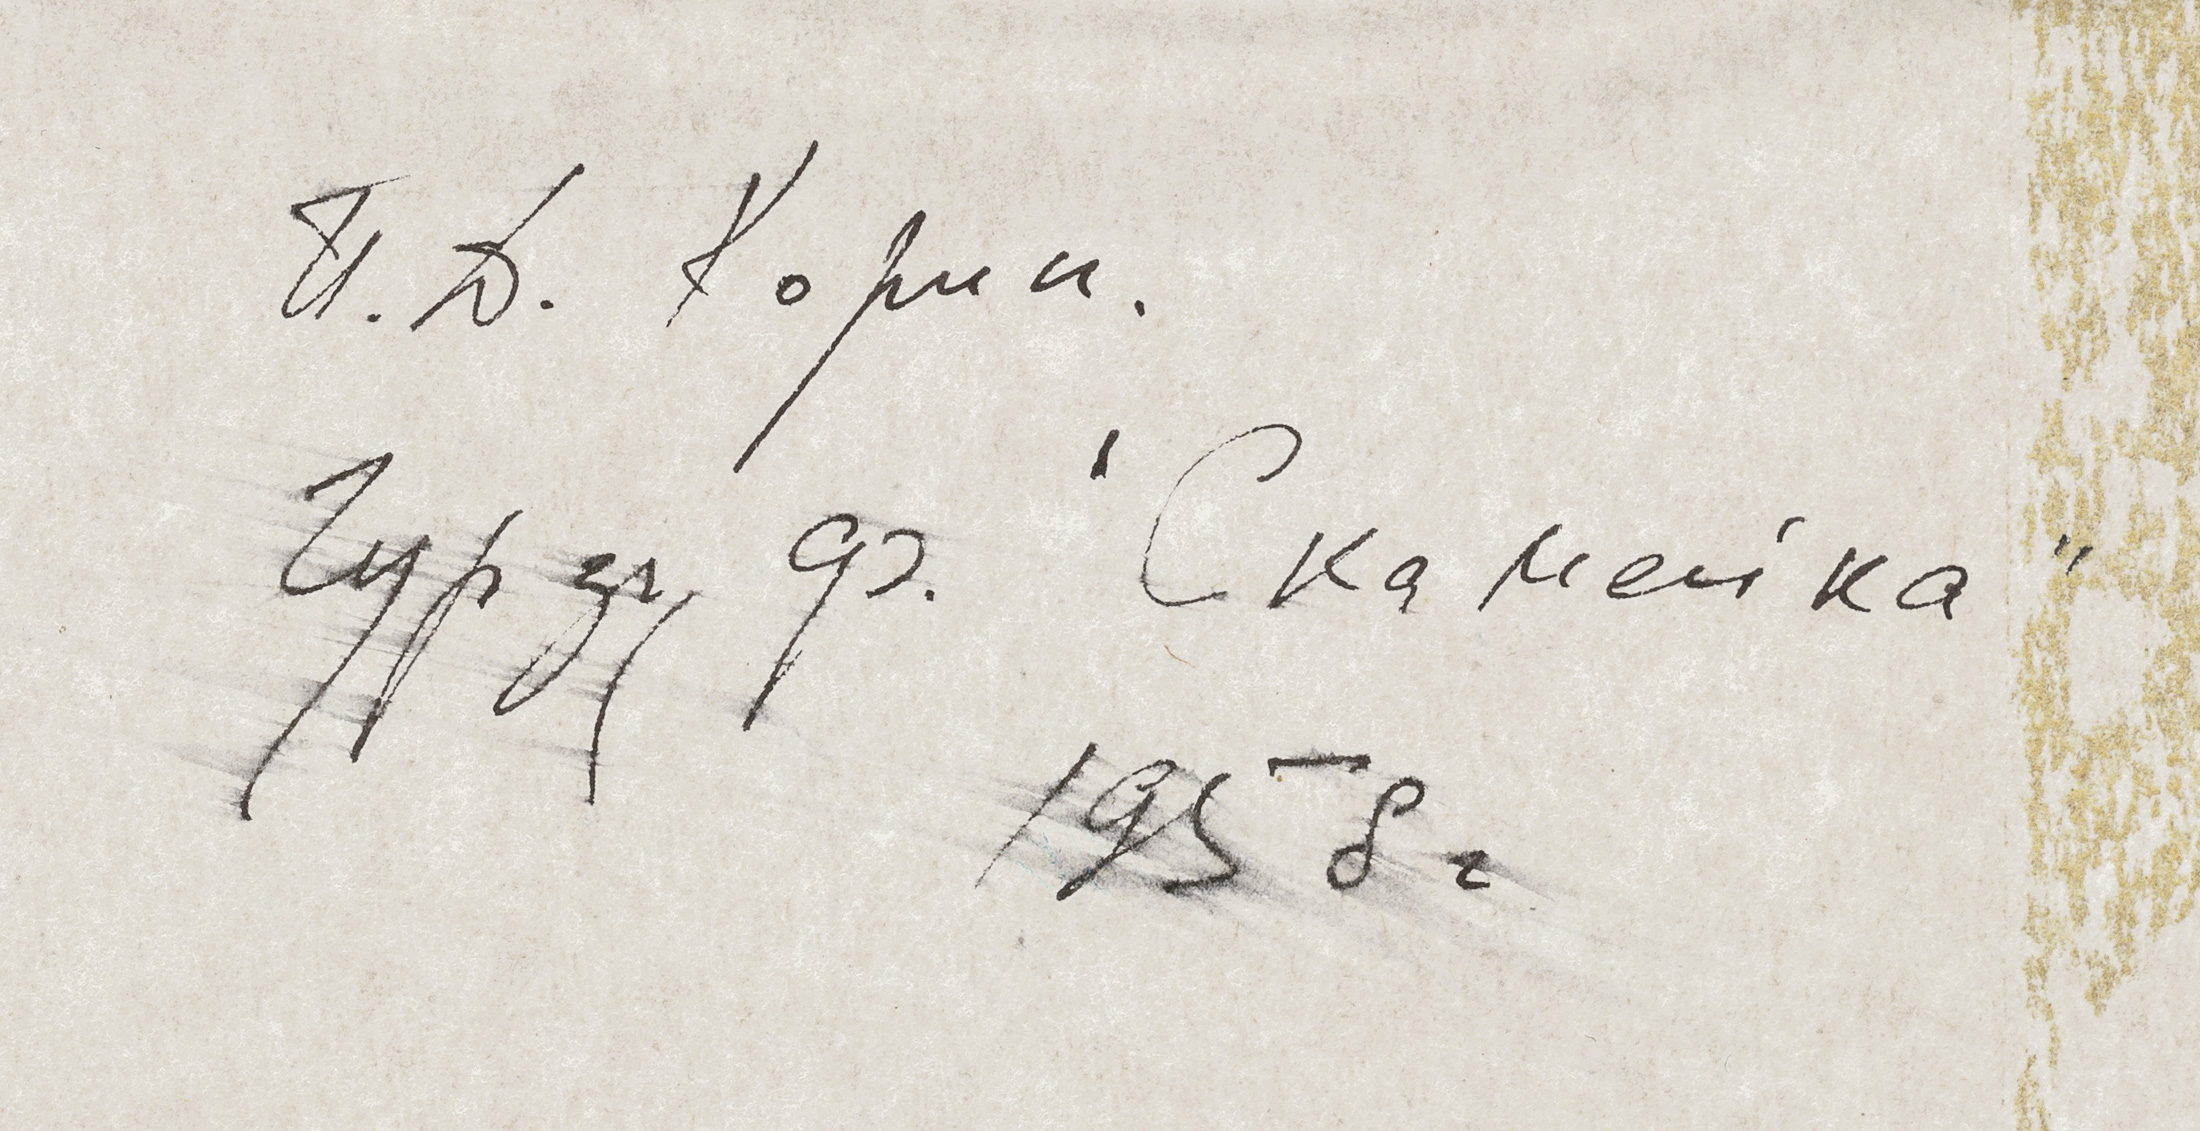 П. Д. Корин.
Гурзуф. "Скамейка"
1958 г